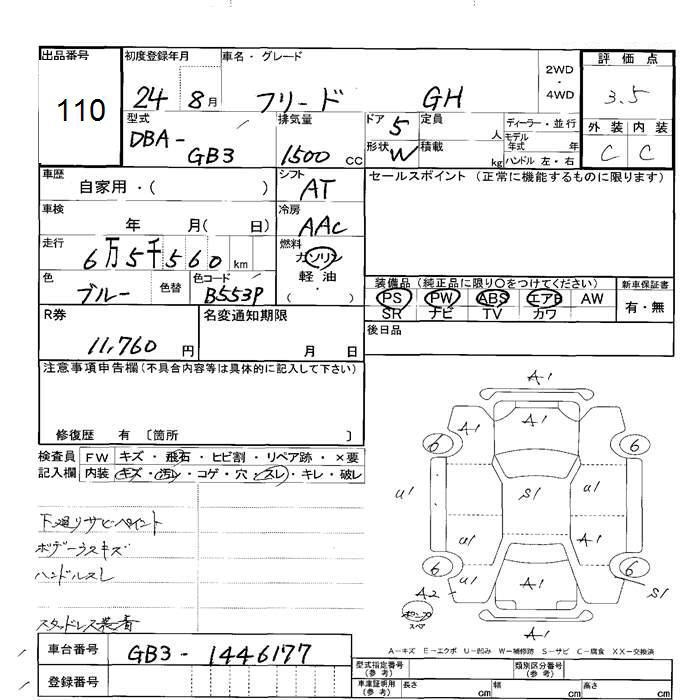 出品番号 初度登録年月 車名・グレード 評価点
110 24 8月 フリード GH 2WD・4WD 3.5
型式 排気量 ドア 定員 ディーラー・並行 外装 内装
DBA-GB3 1500 cc 5 人 モデル年式 年 C C
形状 W 積載 kg ハンドル 左・右
車歴 シフト セールスポイント (正常に機能するものに限ります)
自家用・( ) AT
車検 冷房
年 月( 日) AAC
走行 燃料
6万5千560 km ガソリン
軽油
・
( )
色 色替 色コード 装備品 (純正品に限り○をつけてください) 新車保証書
ブルー B553P PS PW ABS エアB AW 有・無
SR ナビ TV カワ
R券 名変通知期限 後日品
11,760 円 月 日
注意事項申告欄(不具合内容等は具体的に記入して下さい)
修復歴 有 〔箇所 〕
検査員 FW キズ・飛石・ヒビ割・リペア跡・×要
記入欄 内装 キズ・汚レ・コゲ・穴・スレ・キレ・破レ
下廻リサビペイント
ボデーウスキズ
ハンドルスレ
スタッドレス装着
A1
A1 A1
6 6
U1 S1 U1
U1 A1
6 6
U1 A1
A2 S1
ポンプ
スペア
A1
A-キズ E-エクボ U-凹み W-補修跡 S-サビ C-腐食 XX-交換済
車台番号 GB3-1446177
型式指定番号(参考) 類別区分番号(参考)
登録番号 車庫証明用(参考) 長さ cm 幅 cm 高さ cm